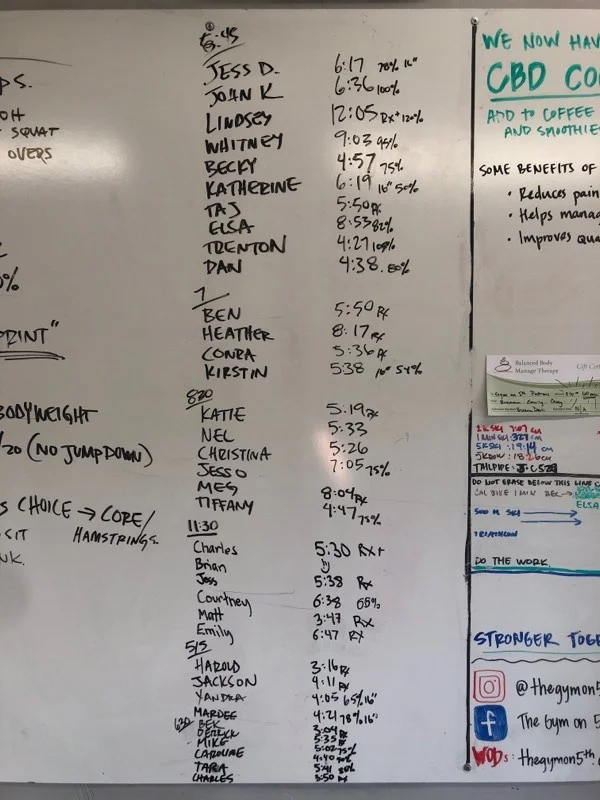 PS.
OH
SQUAT
OVERS
0%
PRINT"
BODYWEIGHT
/20 (NO JUMPDOWN)
S CHOICE → CORE/
HAMSTRINGS.
SIT
NK.
5:45
JESS D. 6:17 70% 16"
JOHN K 6:36 100%
LINDSEY 12:05 RX+ 120%
WHITNEY 9:03 95%
BECKY 4:57 75%
KATHERINE 6:19 16" 50%
TAJ 5:50 RX
ELSA 8:53 82%
TRENTON 4:27 100%
DAN 4:38 80%
7
BEN 5:50 RX
HEATHER 8:17 RX
CONRA 5:36 RX
KIRSTIN 5:38 16" 54%
820
KATIE 5:19 RX
NEL 5:33
CHRISTINA 5:26
JESS O 7:05 75%
MEG 8:04 RX
TIFFANY 4:47 75%
11:30
Charles 5:30 RX+
Brian
Jess 5:38 RX
Courtney 6:38 65%
Matt 3:47 RX
Emily 6:47 RX
5/5
HAROLD 3:16 RX
JACKSON 4:11 RX
YANDRA 4:05 65% 16"
MARDEE 4:21 78% 16"
630 BEK 3:04
DERRICK 5:35
MIKE 5:02 75%
CAROLINE 4:40
TARA 5:41 80%
CHARLES 3:50 RX
WE NOW HAV
CBD CO
ADD TO COFFEE
AND SMOOTHIE
SOME BENEFITS OF
• Reduces pain
• Helps manag
• Improves qua
Balanced Body
Massage Therapy
Gift Cert
2K SKI 7:07
1 MIN SKI 327
5K SKI :19:14
5K ROW :18:26
TAILPIPE: J-C 5:28
DO NOT ERASE BELOW THIS LINE
CAL BIKE 1 MIN DEC→
ELSA
500 M SKI
TRIATHLON
DO THE WORK.
STRONGER TOGE
@thegymon5
The Gym on 5
WODs: thegymon5th.